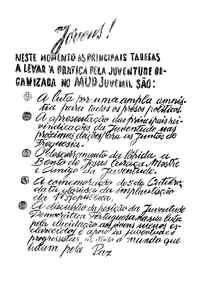 Jovens!
NESTE MOMENTO AS PRINCIPAIS TAREFAS
A LEVAR À PRÁTICA PELA JUVENTUDE OR-
GANIZADA NO MUD JUVENIL SÃO:
A luta por uma ampla amnis-
tia para todos os presos políticos.
A apresentação das principais rei-
vindicações da Juventude nas
próximas eleições para as Juntas de
Freguesia.
da Vida e
Bento de Jesus Caraça, Mestre
e Amigo da Juventude.
A comemoração do 5 de Outubro,
data gloriosa da implantação
da República.
A discussão da posição da Juventude
Democrática Portuguesa na sua luta
pela aos jovens menos es-
clarecidos e apoio às juventudes
progressistas de todo o mundo que
lutam pela Paz